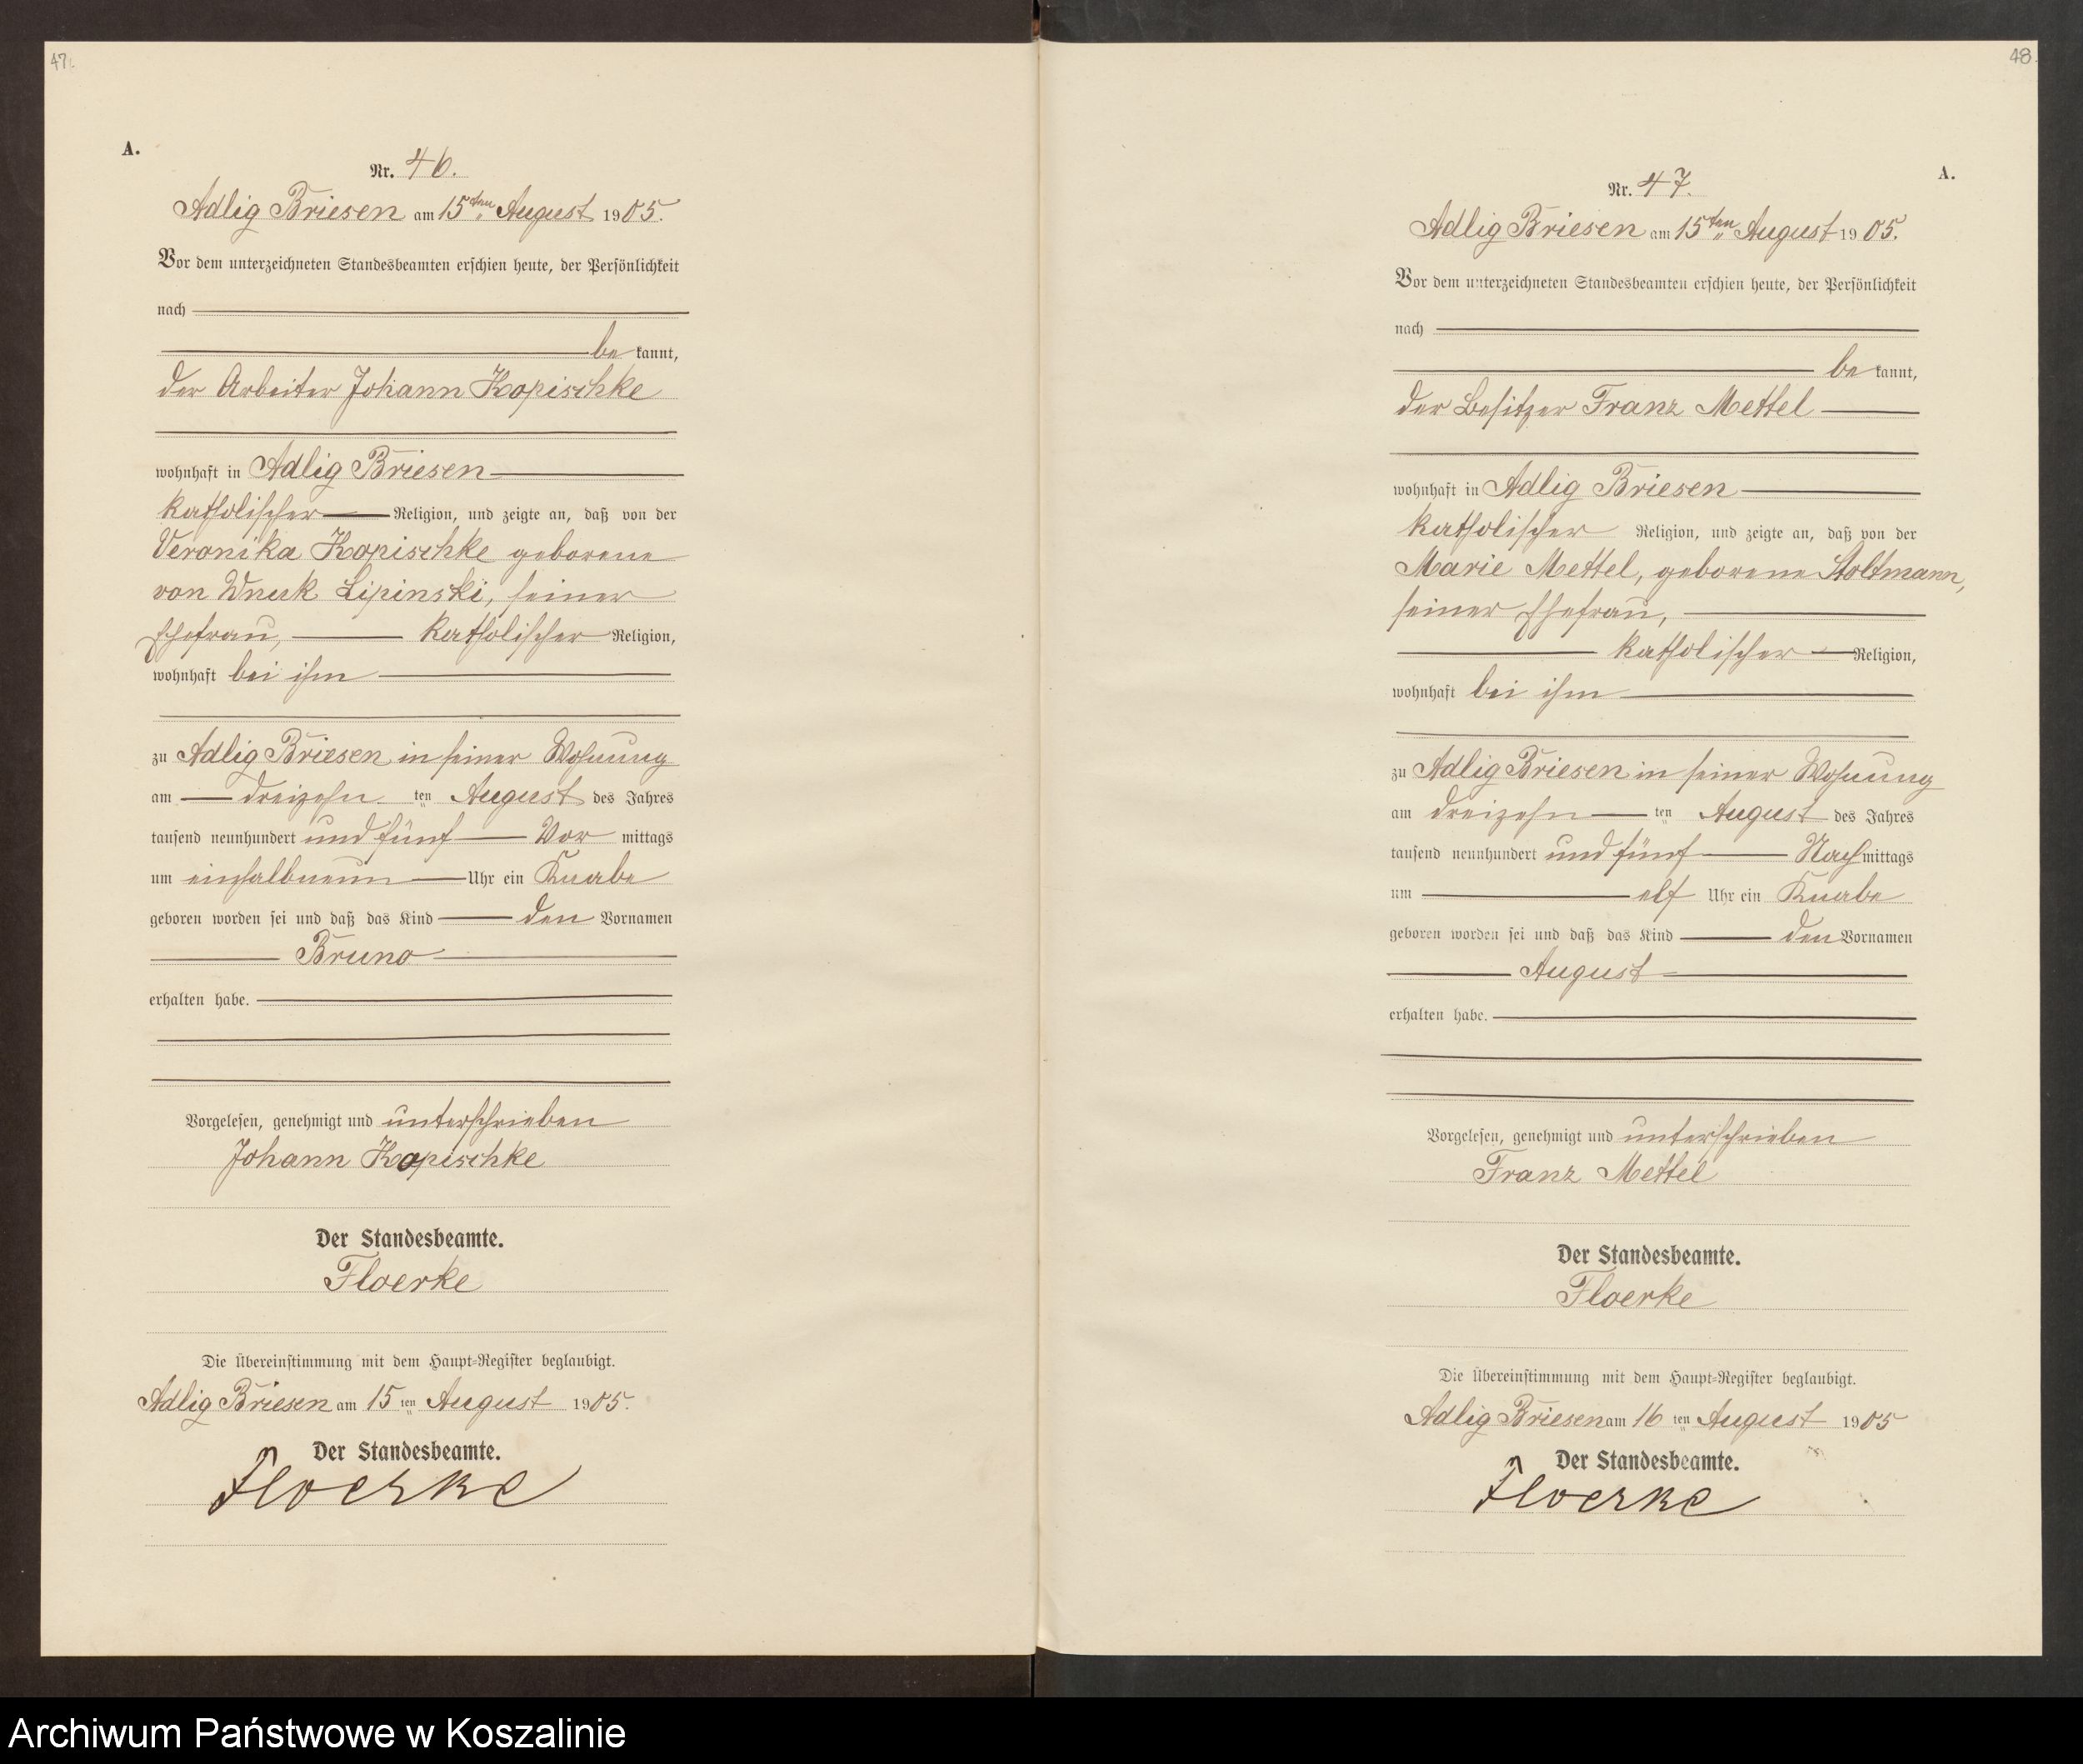 47.
A.
Nr. 46.
Adlig Briesen am 15ten August 1905.
Vor dem unterzeichneten Standesbeamten erschien heute, der Persönlichkeit
nach
be kannt,
der Arbeiter Johann Kopischke
wohnhaft in Adlig Briesen
katholischer Religion, und zeigte an, daß von der
Veronika Kopischke geborene
von Wnuk Lipinski, seiner
Ehefrau, katholischer Religion,
wohnhaft bei ihm
zu Adlig Briesen in seiner Wohnung
am dreizehn ten August des Jahres
tausend neunhundert und fünf Vor mittags
um einhalbneun Uhr ein Knabe
geboren worden sei und daß das Kind den Vornamen
Bruno
erhalten habe.
Vorgelesen, genehmigt und unterschrieben
Johann Kopischke
Der Standesbeamte.
Floerke
Die Übereinstimmung mit dem Haupt-Register beglaubigt.
Adlig Briesen am 15 ten August 1905.
Der Standesbeamte.
Floerke
48.
A.
Nr. 47.
Adlig Briesen am 15ten August 1905.
Vor dem unterzeichneten Standesbeamten erschien heute, der Persönlichkeit
nach
be kannt,
der Besitzer Franz Mettel
wohnhaft in Adlig Briesen
katholischer Religion, und zeigte an, daß von der
Marie Mettel, geborene Stoltmann,
seiner Ehefrau,
katholischer Religion,
wohnhaft bei ihm
zu Adlig Briesen in seiner Wohnung
am dreizehn ten August des Jahres
tausend neunhundert und fünf Nach mittags
um elf Uhr ein Knabe
geboren worden sei und daß das Kind den Vornamen
August
erhalten habe.
Vorgelesen, genehmigt und unterschrieben
Franz Mettel
Der Standesbeamte.
Floerke
Die Übereinstimmung mit dem Haupt-Register beglaubigt.
Adlig Briesen am 16 ten August 1905
Der Standesbeamte.
Floerke
Archiwum Państwowe w Koszalinie